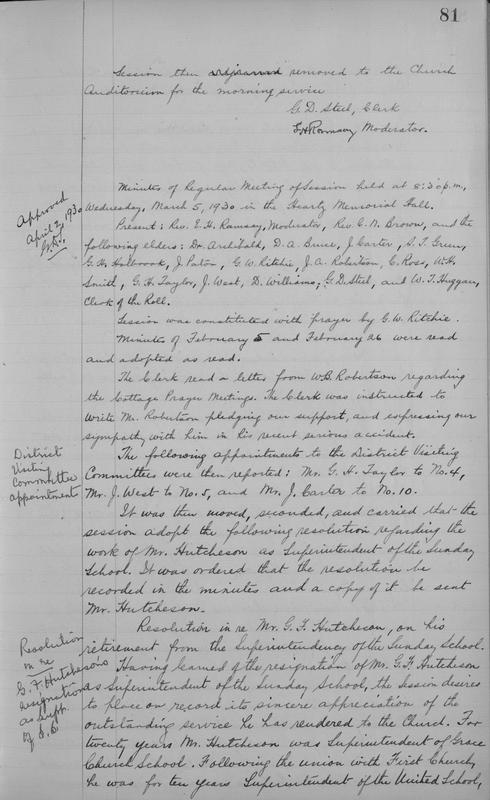 81
Session then adjourned removed to the Church
Auditorium for the morning service
G.D. Steel, Clerk
E.H. Ramsay Moderator.
Approved
April 2, 1930
Minutes of Regular Meeting of Session held at 8:30 p.m.,
Wednesday, March 5, 1930 in the Hearty Memorial Hall.
Present: Rev. E.H. Ramsay, Moderator, Rev. C.N. Brown, and the
following elders: Dr. Archibald, D.A. Bruce, J. Carter, S.T. Green,
G.H. Holbrook, J. Paton, G.W. Ritchie, J.A. Robertson, C. Ross, W.H.
Smith, G.H. Taylor, J. West, D. Williams, G.D. Steel, and W.T. Huggan,
Clerk of the Roll.
Session was constituted with prayer by G.W. Ritchie.
Minutes of February 5 and February 26 were read
and adopted as read.
The Clerk read a letter from W.B. Robertson regarding
the Cottage Prayer Meetings. The Clerk was instructed to
write Mr. Robertson pledging our support, and expressing our
sympathy with him in his recent serious accident.
District
Visiting
Committee
appointments
The following appointments to the District Visiting
Committees were then reported: Mr. G.H. Taylor to No. 4,
Mr. J. West to No. 5, and Mr. J. Carter to No. 10.
It was then moved, seconded, and carried that the
session adopt the following resolution regarding the
work of Mr. Hutcheson as Superintendent of the Sunday
School. It was ordered that the resolution be
recorded in the minutes and a copy of it be sent
Mr. Hutcheson.
Resolution
in re
G.F. Hutcheson's
resignation
as Supt.
of S.S.
Resolution in re Mr. G.F. Hutcheson, on his
retirement from the Superintendency of the Sunday School.
Having learned of the resignation of Mr. G.F. Hutcheson
as Superintendent of the Sunday School, the Session desires
to place on record its sincere appreciation of the
outstanding service he has rendered to the Church. For
twenty years Mr. Hutcheson was Superintendent of Grace
Church School. Following the union with First Church,
he was for ten years Superintendent of the United School,